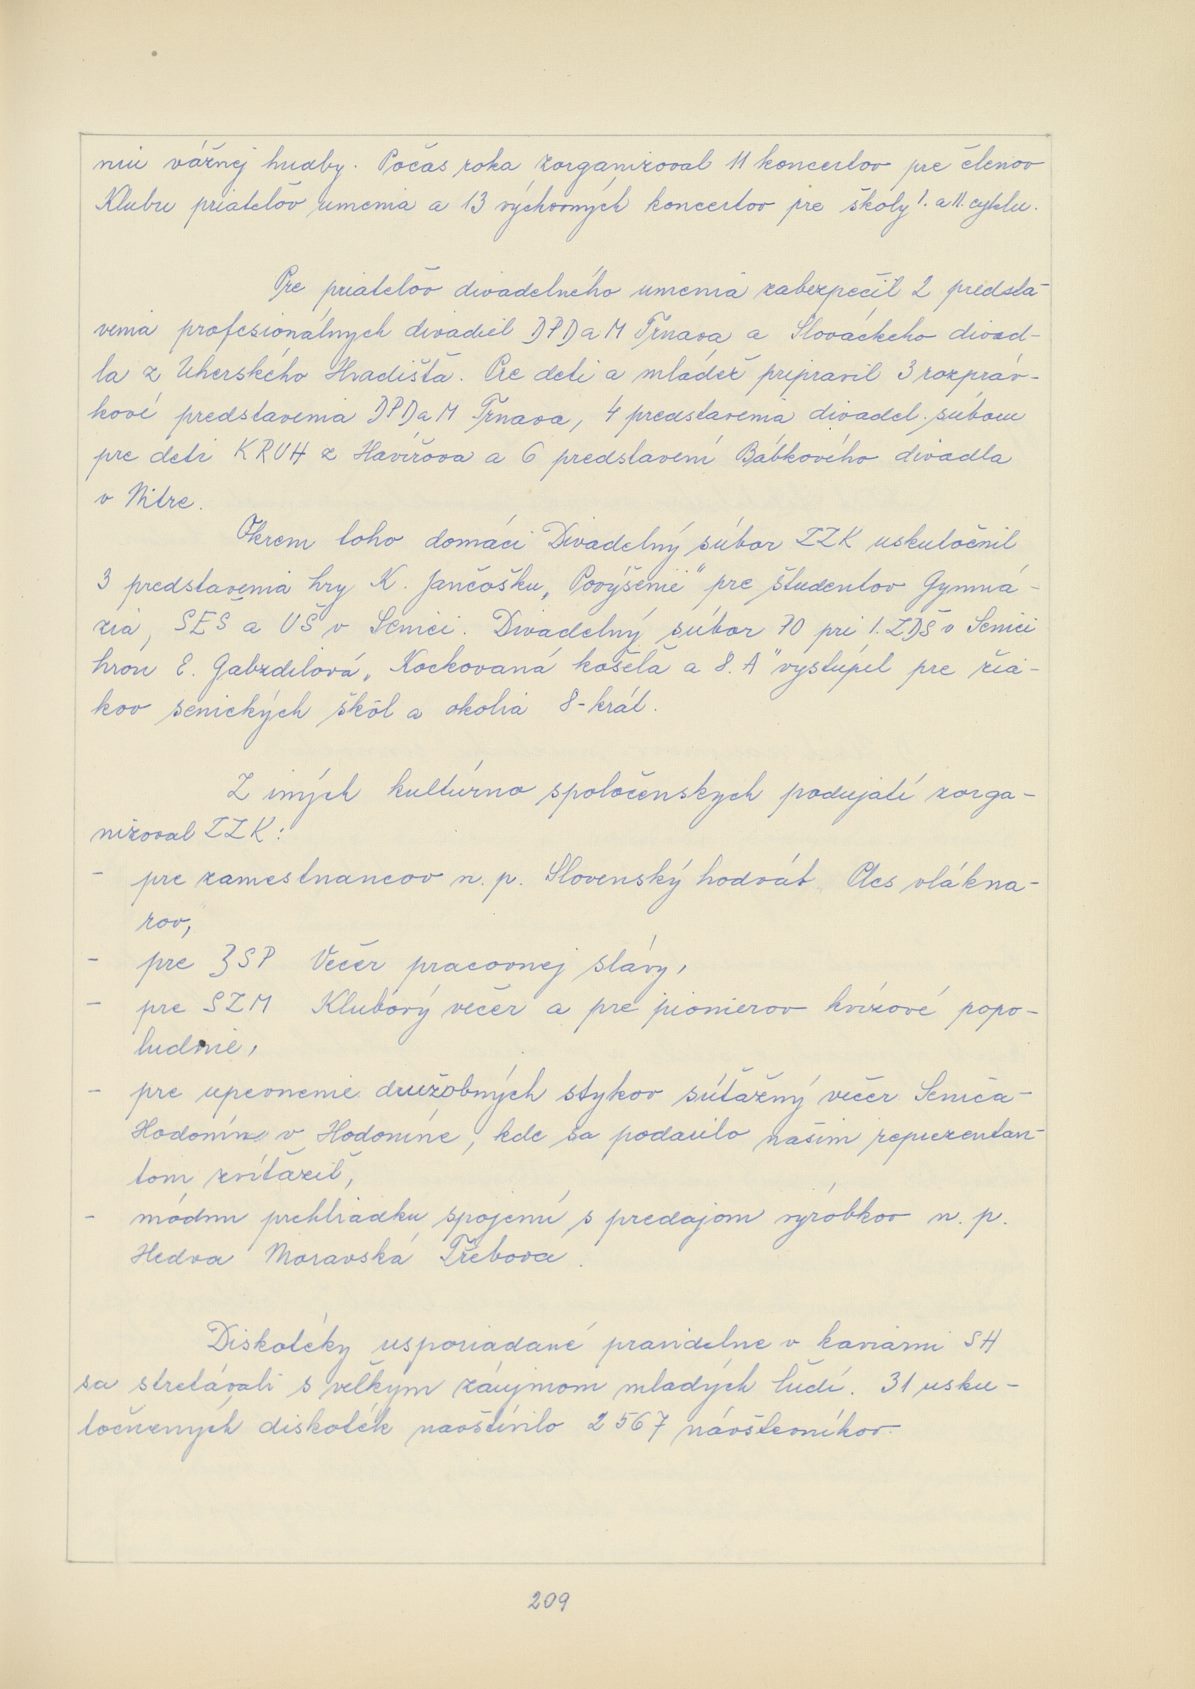 niu vážnej hudby. Počas roka zorganizoval 11 koncertov pre členov
Klubu priateľov umenia a 13 výchovných koncertov pre školy I. a II. cyklu.
Pre priateľov divadelného umenia zabezpečil 2 predsta-
venia profesionálnych divadiel DPDaM Trnava a Slováckeho divad-
la z Uherského Hradišťa. Pre deti a mládež pripravil 3 rozpráv-
kové predstavenia DPDaM Trnava, 4 predstavenia divadel. súboru
pre deti KRUH z Havířova a 6 predstavení Bábkového divadla
v Nitre.
Okrem toho domáci Divadelný súbor ZZK uskutočnil
3 predstavenia hry K. Jančošku „Povýšenie" pre študentov Gymná-
zia, SEŠ a UŠ v Senici. Divadelný súbor 70 pri I. ZDŠ v Senici
hrou E. Gabzdilová „Kockovaná košeľa a 8. A" vystúpil pre žia-
kov senických škôl a okolia 8-krát.
Z iných kultúrno spoločenských podujatí zorga-
nizoval ZZK:
- pre zamestnancov n. p. Slovenský hodváb Ples vlákna-
rov,
- pre ZSP Večer pracovnej slávy,
- pre SZM Klubový večer a pre pionierov kvízové popo-
ludnie,
- pre upevnenie družobných stykov súťažný večer Senica-
Hodonín v Hodoníne, kde sa podarilo našim reprezentan-
tom zvíťaziť,
- módnu prehliadku spojenú s predajom výrobkov n. p.
Hedva Moravská Třebova.
Diskotéky usporiadané pravidelne v kaviarni SH
sa stretávali s veľkým záujmom mladých ľudí. 31 usku-
točnených diskoték navštívilo 2 567 návštevníkov.
209